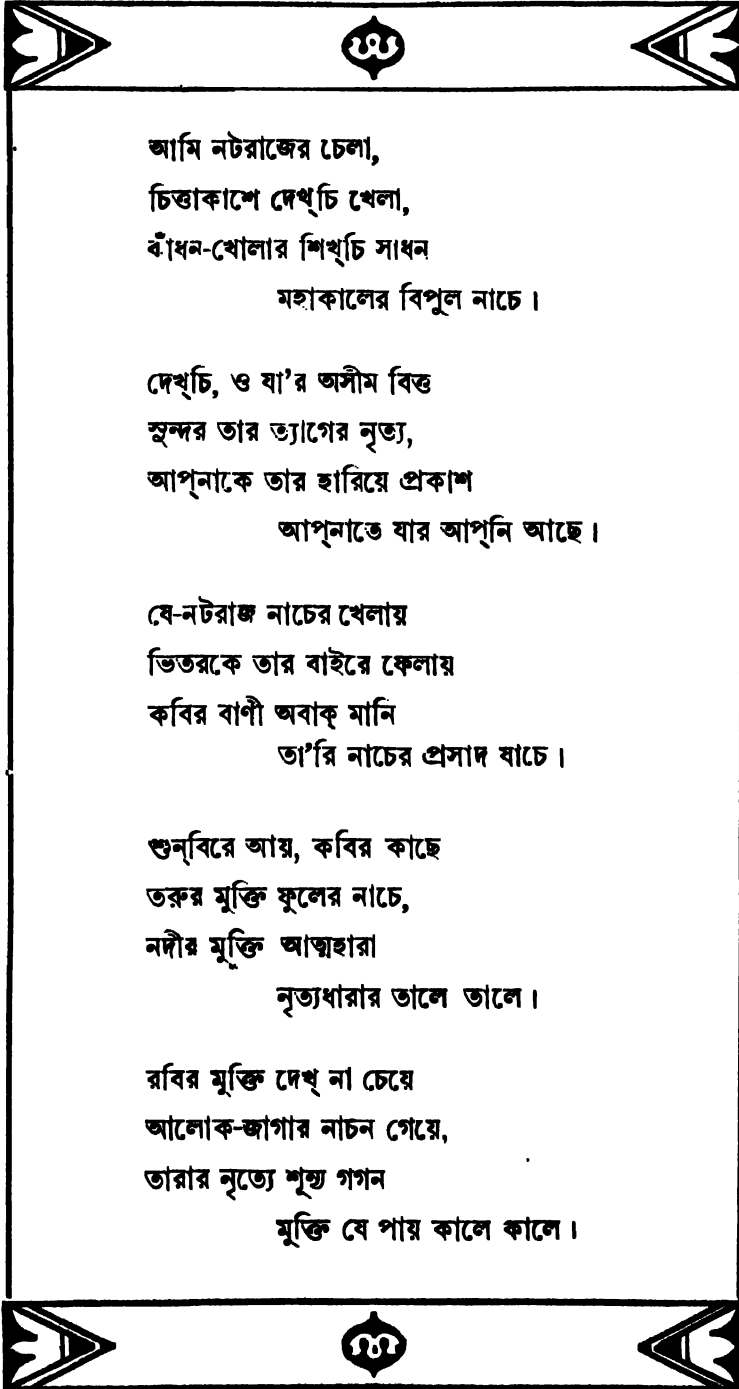 আমি নটরাজের চেলা,
চিত্তাকাশে দেখ্‌চি খেলা,
বাঁধন-খোলার শিখ্‌চি সাধন
মহাকালের বিপুল নাচে।
দেখ্‌চি, ও যা’র অসীম বিত্ত
সুন্দর তার ত্যাগের নৃত্য,
আপ্‌নাকে তার হারিয়ে প্রকাশ
আপ্‌নাতে যার আপ্‌নি আছে।
যে-নটরাজ নাচের খেলায়
ভিতরকে তার বাইরে ফেলায়
কবির বাণী অবাক্ মানি
তা’রি নাচের প্রসাদ যাচে।
শুন্‌বিরে আয়, কবির কাছে
তরুর মুক্তি ফুলের নাচে,
নদীর মুক্তি আত্মহারা
নৃত্যধারার তালে তালে।
রবির মুক্তি দেখ্ না চেয়ে
আলোক-জাগার নাচন গেয়ে,
তারার নৃত্যে শূন্য গগন
মুক্তি যে পায় কালে কালে।